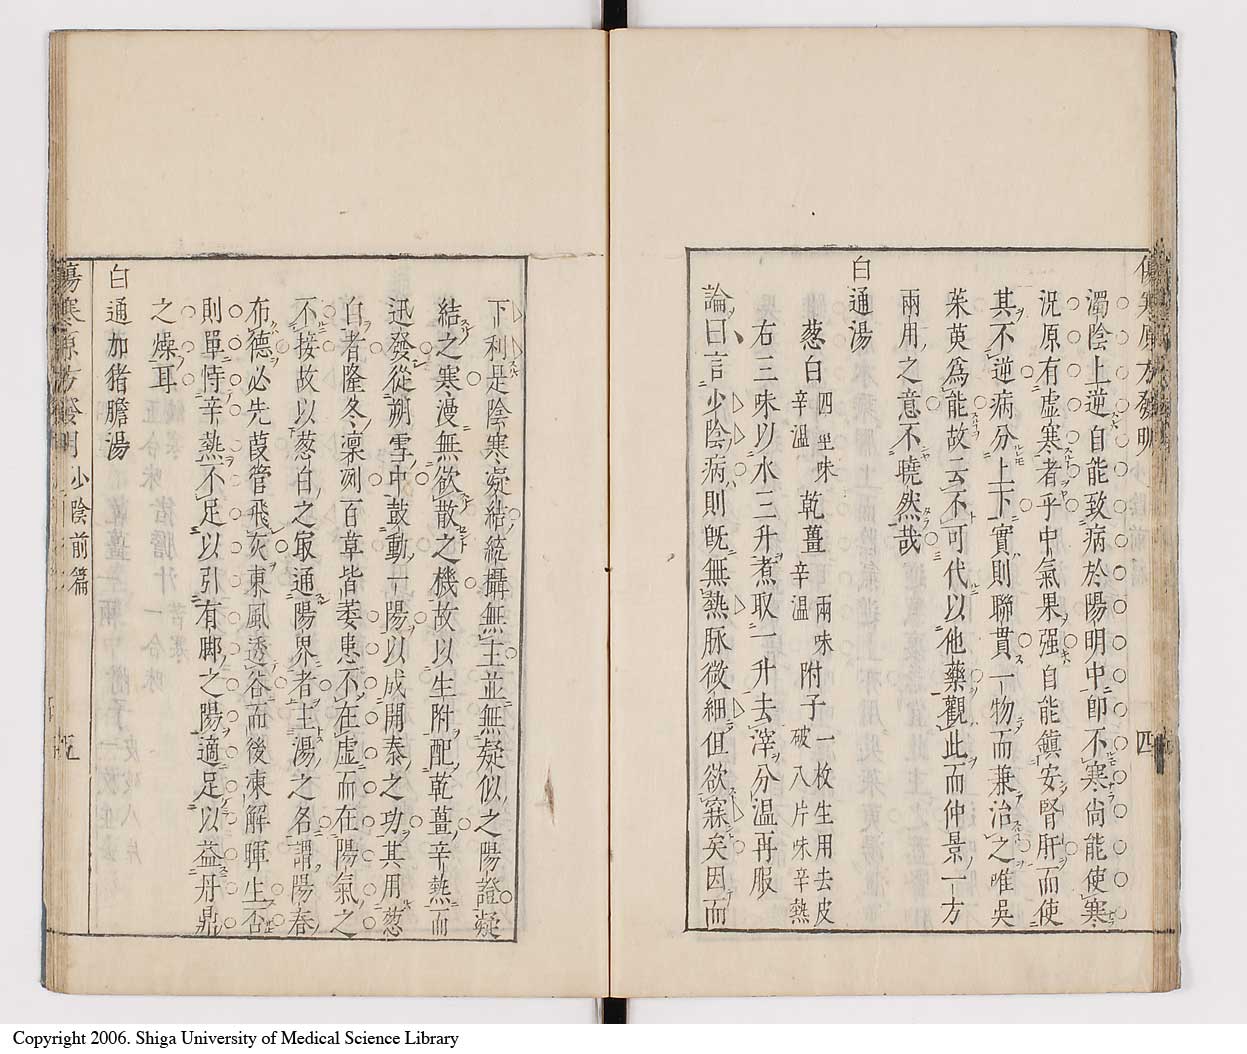 傷寒原方發明
四
濁陰上逆自能致病於陽明中卽不寒尚能使寒
況原有虛寒者乎中氣果强自能鎭安腎肝而使
其不逆病分上下實則聯貫一物而兼治之唯吳
茱萸爲能故云不可代以他藥觀此而仲景一方
兩用之意不曉然哉
白通湯
葱白 四莖味辛溫 乾薑 兩味辛溫 附子 一枚生用去皮破八片味辛熱
右三味以水三升煮取一升去滓分温再服
論曰言少陰病則旣無熱脉微細但欲寐矣因而
下利是陰寒凝結統攝無主並無疑似之陽證凝
結之寒漫無欲散之機故以生附配乾薑辛熱而
迅發從朔雪中鼓動一陽以成開泰之功其用葱
白者隆冬凛冽百草皆萎患不在虛而在陽氣之
不接故以葱白之寂通陽界者主湯之名謂陽春
布德必先葭管飛灰東風透谷而後凍解暉生否
則單恃辛熱不足以引有脚之陽適足以益丹鼎
之燥耳
白通加猪膽湯
傷寒原方發明 少陰前篇
五
Copyright 2006. Shiga University of Medical Science Library